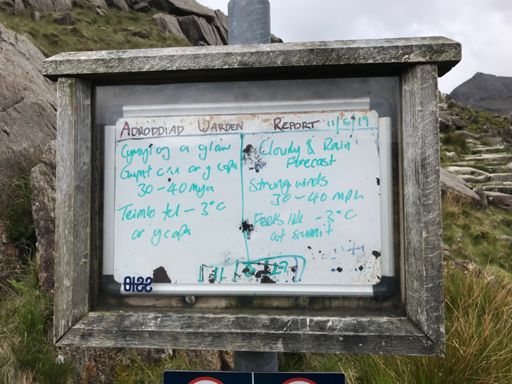 ADRODDIAD WARDEN REPORT 11/6/19
Cymylog a glaw
Gwynt cru ar y copa
30-40 mya
Teimlo fel -3°C
ar y copa
Cloudy & Rain
Forecast
Strong winds
30-40 mph
Feels like -3°C
at summit
11 6 19